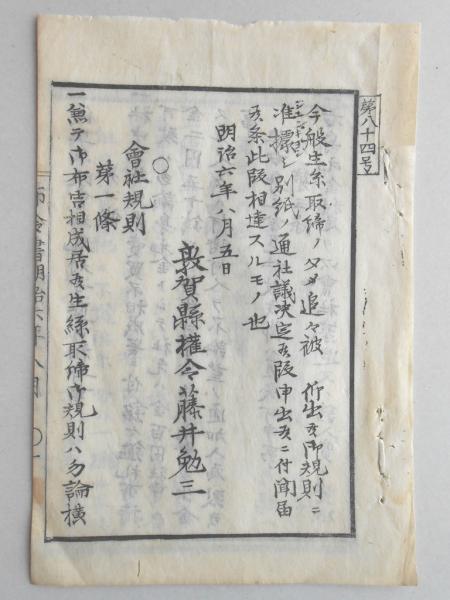 第八十四号
今般生糸取締ノタメ追々被 仰出候御規則ニ
准擬シ別紙ノ通社議決定候段申出候ニ付聞届
候条此段相達スルモノ也
明治六年八月五日
敦賀縣權令藤井勉三
○
會社規則
第一條
一兼テ御布告相成居候生絲取締御規則ハ勿論横